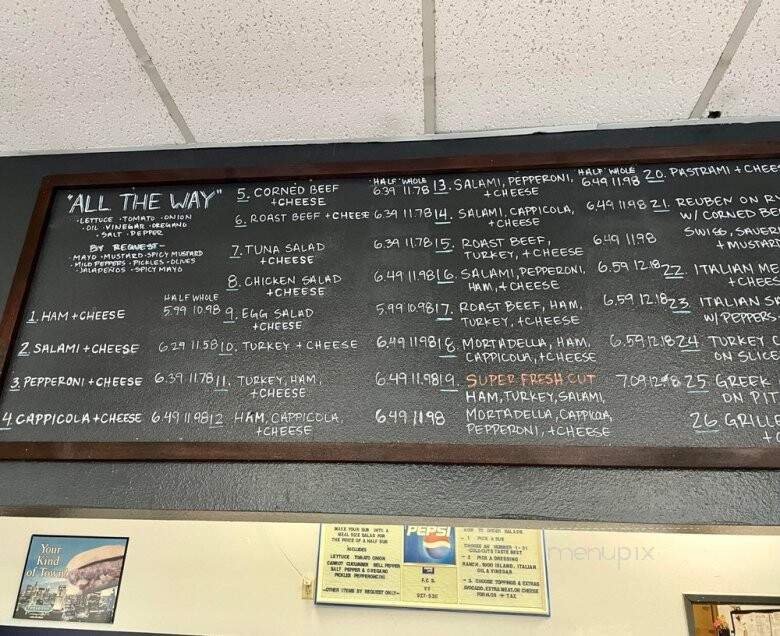 "ALL THE WAY"
·LETTUCE ·TOMATO ·ONION
·OIL ·VINEGAR ·OREGANO
·SALT ·PEPPER
BY REQUEST-
·MAYO ·MUSTARD ·SPICY MUSTARD
·MILD PEPPERS ·PICKLES ·OLIVES
·JALAPEÑOS ·SPICY MAYO
HALF WHOLE
1. HAM + CHEESE 5.99 10.98
2. SALAMI + CHEESE 6.29 11.58
3. PEPPERONI + CHEESE 6.39 11.78
4. CAPPICOLA + CHEESE 6.49 11.98
HALF WHOLE
5. CORNED BEEF 6.39 11.78
+CHEESE
6. ROAST BEEF + CHEESE 6.39 11.78
7. TUNA SALAD 6.39 11.78
+CHEESE
8. CHICKEN SALAD 6.49 11.98
+CHEESE
9. EGG SALAD 5.99 10.98
+CHEESE
10. TURKEY + CHEESE 6.49 11.98
11. TURKEY, HAM, 6.49 11.98
+CHEESE
12 HAM, CAPPICOLA, 6.49 11.98
+CHEESE
HALF WHOLE
13. SALAMI, PEPPERONI, 6.49 11.98
+CHEESE
14. SALAMI, CAPPICOLA, 6.49 11.98
+CHEESE
15. ROAST BEEF, 6.49 11.98
TURKEY, +CHEESE
16. SALAMI, PEPPERONI, 6.59 12.18
HAM, +CHEESE
17. ROAST BEEF, HAM, 6.59 12.18
TURKEY, +CHEESE
18. MORTADELLA, HAM, 6.59 12.18
CAPPICOLA, +CHEESE
19. SUPER FRESH CUT 7.09 12.98
HAM, TURKEY, SALAMI,
MORTADELLA, CAPPICOLA,
PEPPERONI, +CHEESE
20. PASTRAMI + CHEES
21. REUBEN ON R
W/ CORNED BEE
SWISS, SAUER
+ MUSTAR
22. ITALIAN ME
+CHEES
23. ITALIAN S
W/PEPPERS
24. TURKEY C
ON SLICE
25. GREEK
ON PIT
26. GRILLE
Your
Kind
of Town
MAKE YOUR SUB INTO A
MEAL SIZE SALAD FOR
THE PRICE OF A HALF SUB
INCLUDES
LETTUCE TOMATO ONION
CARROT CUCUMBER BELL PEPPER
SALT PEPPER & OREGANO
PICKLES PEPPERONCINI
-OTHER ITEMS BY REQUEST ONLY-
PEPSI
HOW TO ORDER SALADS
- 1 PICK A SUB
- 2 PICK A DRESSING
RANCH, 1000 ISLAND, ITALIAN
OIL & VINEGAR
- 3. CHOOSE TOPPINGS & EXTRAS
AVOCADO, EXTRA MEAT, OR CHEESE
menupix